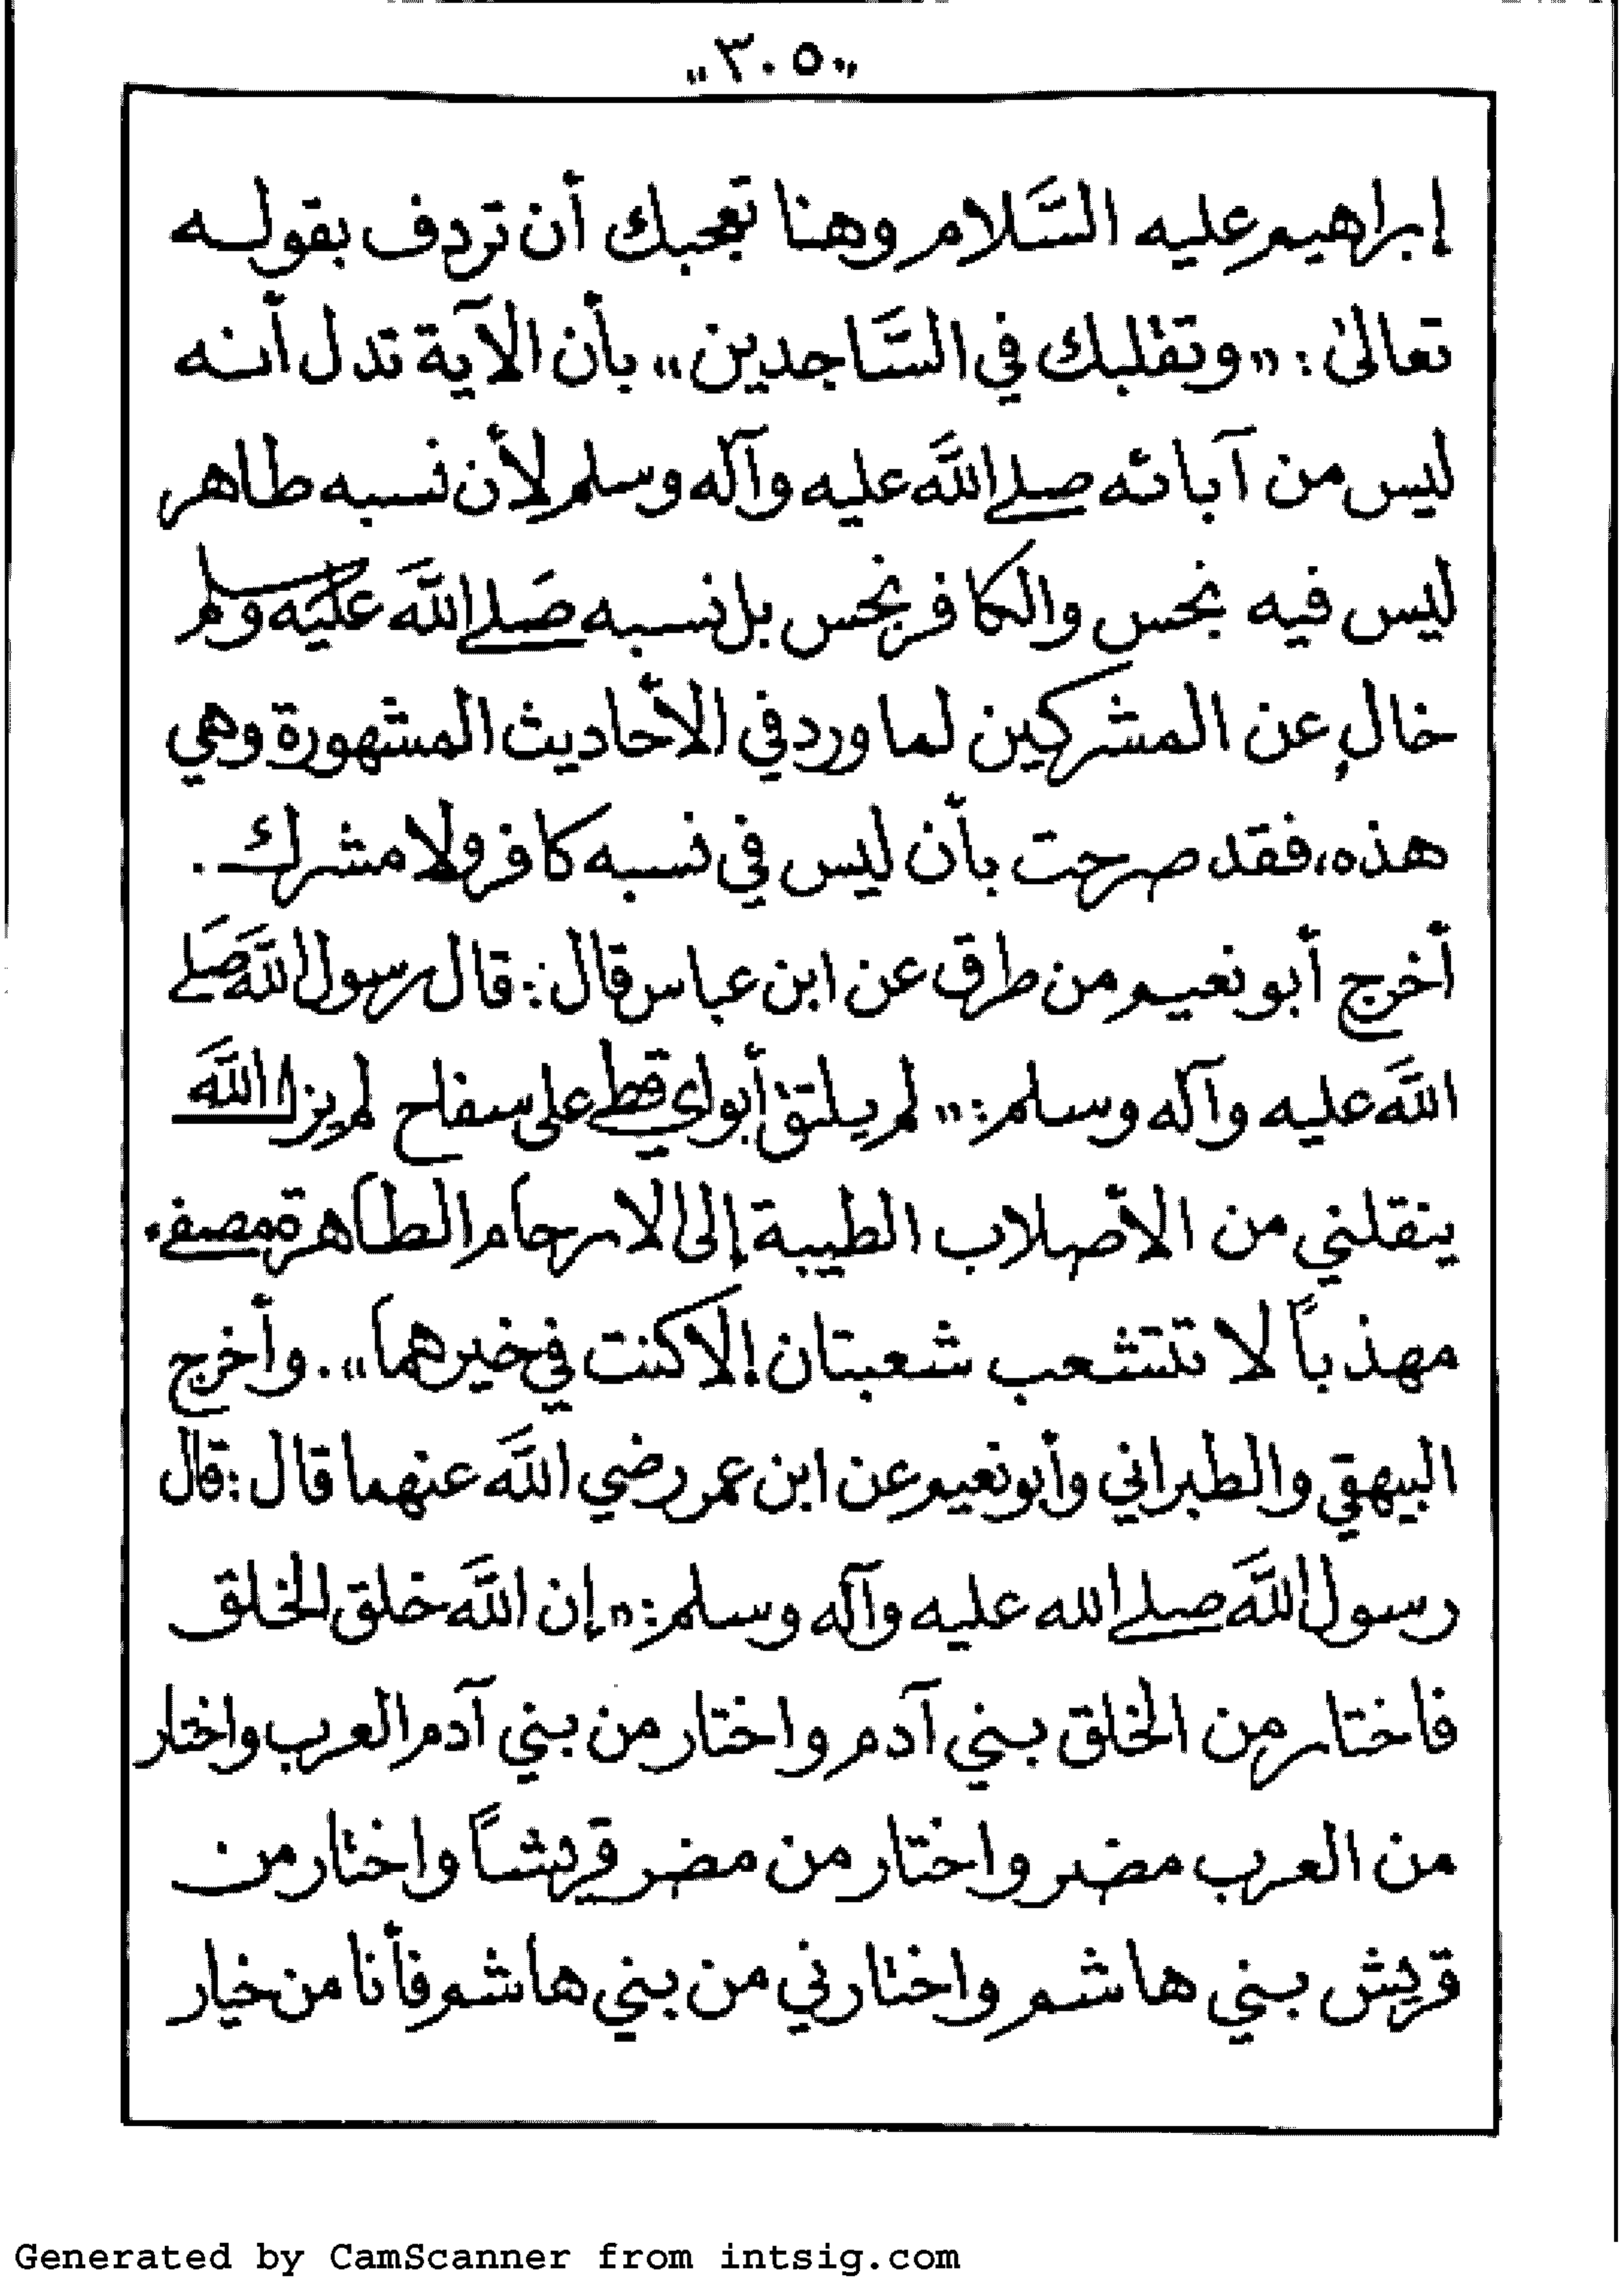 "٣٠٥"
إبراهيم عليه السَّلام وهنا تعجبك أن تردف بقوله
تعالىٰ: "وتقلبك في السَّاجدين" بأن الآية تدل أنه
ليس من آبائه صلى اللَّه عليه وآله وسلم لأن نسبه طاهر
ليس فيه نجس والكافر نجس بل نسبه صَلى اللَّه علَيه وسلم
خالٍ عن المشركين لما ورد في الأحاديث المشهورة وهي
هذه، فقد صرحت بأن ليس في نسبه كافر ولا مشرك.
أخرج أبو نعيم من طرق عن ابن عباس قال: قال رسول اللَّه صَلى
اللَّه عليه وآله وسلم: "لم يلتق أبواي قط على سفاح لم يزل اللَّه
ينقلني من الأصلاب الطيبة إلى الارحام الطاهرة مصفى
مهذباً لا تتشعب شعبتان إلا كنت في خيرهما". وأخرج
البيهقي والطبراني وأبو نعيم عن ابن عمر رضي اللَّه عنهما قال: قال
رسول اللَّه صلى الله عليه وآله وسلم: "إن اللَّه خلق الخلق
فاختار من الخلق بني آدم واختار من بني آدم العرب واختار
من العرب مضر واختار من مضر قريشاً واختار من
قريش بني هاشم واختارني من بني هاشم فأنا من خيار
Generated by CamScanner from intsig.com